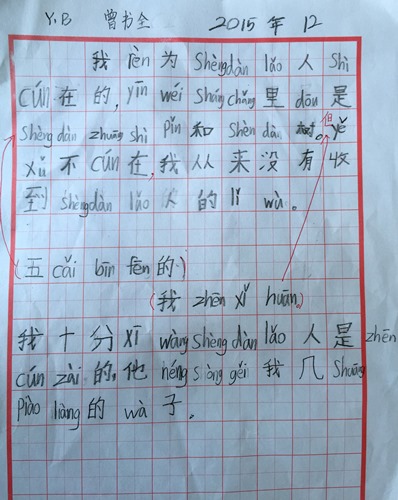 Y.B 曾书全 2015 年 12
我 rèn 为 Shèngdàn lǎo 人 Shì
CÚN 在 的, yīn wéi Shāng chǎng 里 dōu 是
Shèng dàn zhuāng shì Pǐn 和 Shèn dàn 树。但 yě
xǔ 不 CÚN 在, 我 从 来 没 有 收
到 shèngdàn lǎo 人 的 lǐ wù 。
(五 cǎi bīn fēn 的)
(我 zhēn xǐ huān。)
我 十 分 xī wàng Shèng dàn lǎo 人 是 zhēn
cún zài 的, 他 néng sòng gěi 我 几 Shuāng
Piào liàng 的 wà 子 .